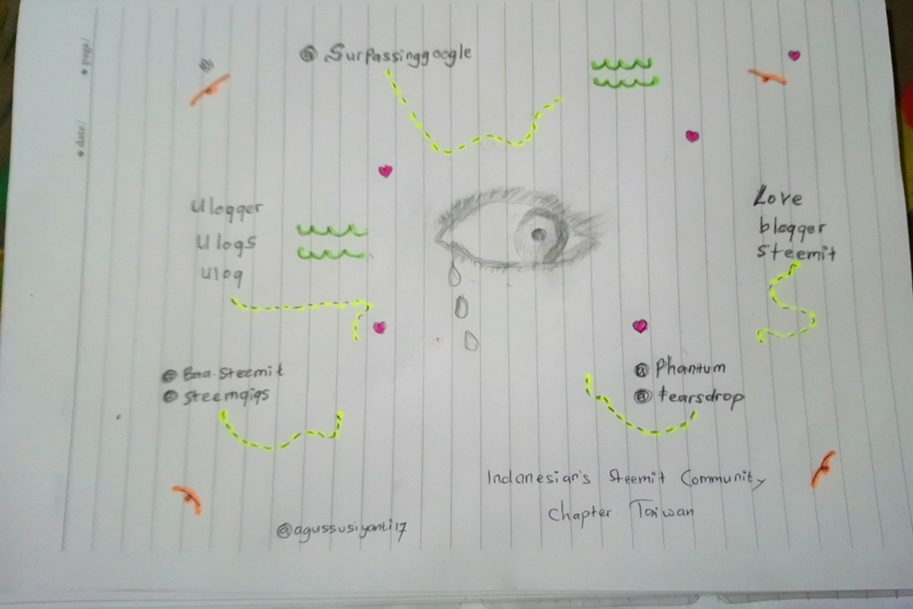 page/
date/
@ Surpassinggoogle
Ulogger
Ulogs
Ulog
Love
blogger
Steemit
@ Bna-Steemit
@ Steemgigs
@ Phantum
@ tearsdrop
Indonesian's Steemit Community
Chapter Taiwan
@agussusiyanti17